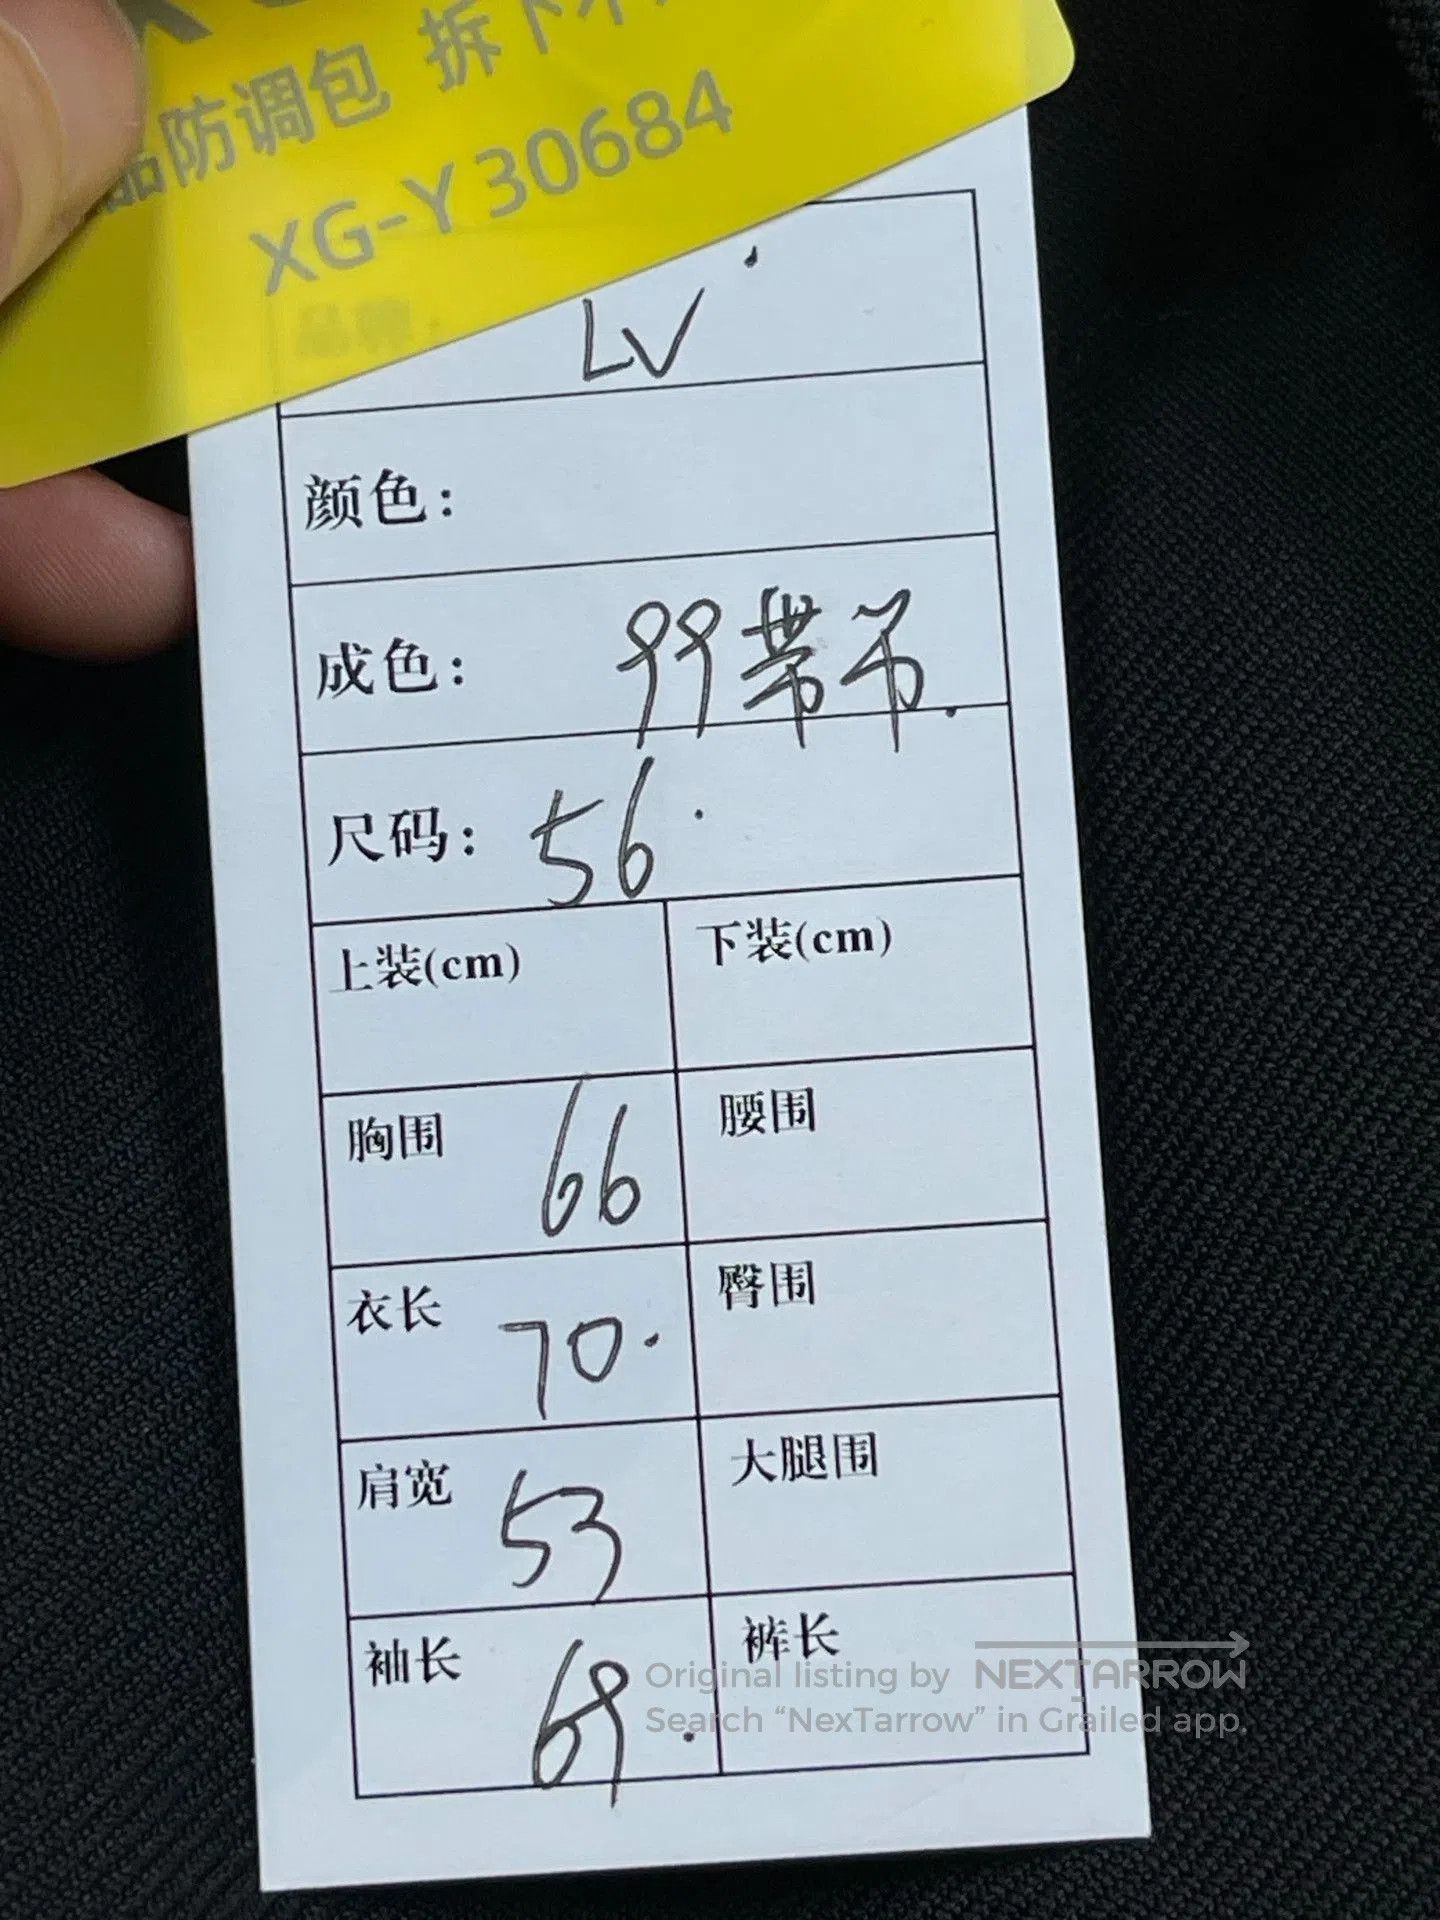 品防调包 拆下不
XG-Y30684
品牌:
LV
颜色:
成色: 99带吊
尺码: 56
上装(cm) 下装(cm)
胸围 66 腰围
衣长 70 臀围
肩宽 53 大腿围
袖长 69 裤长
Original listing by NEXTARROW
Search “NexTarrow” in Grailed app.